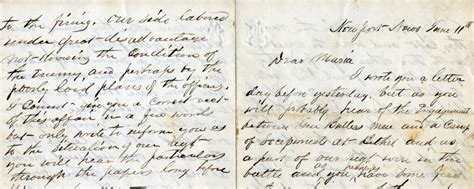 Newport News June 11th
Dear Maria
I wrote you a letter
day before yesterday. but as you
will probably hear of the engagement
between
of Secessionists at Bethel and as
a part of our regt were in the
battle and you have some fears
to the firing. Our side labored
under great disadvantage
not knowing the condition of
the enemy, and perhaps by the
poorly laid plans of the officers.
I cannot give you a correct acct
of this affair in a few words
but only write to inform you as
to the situation of our regt
you will hear the particulars
through the papers long before